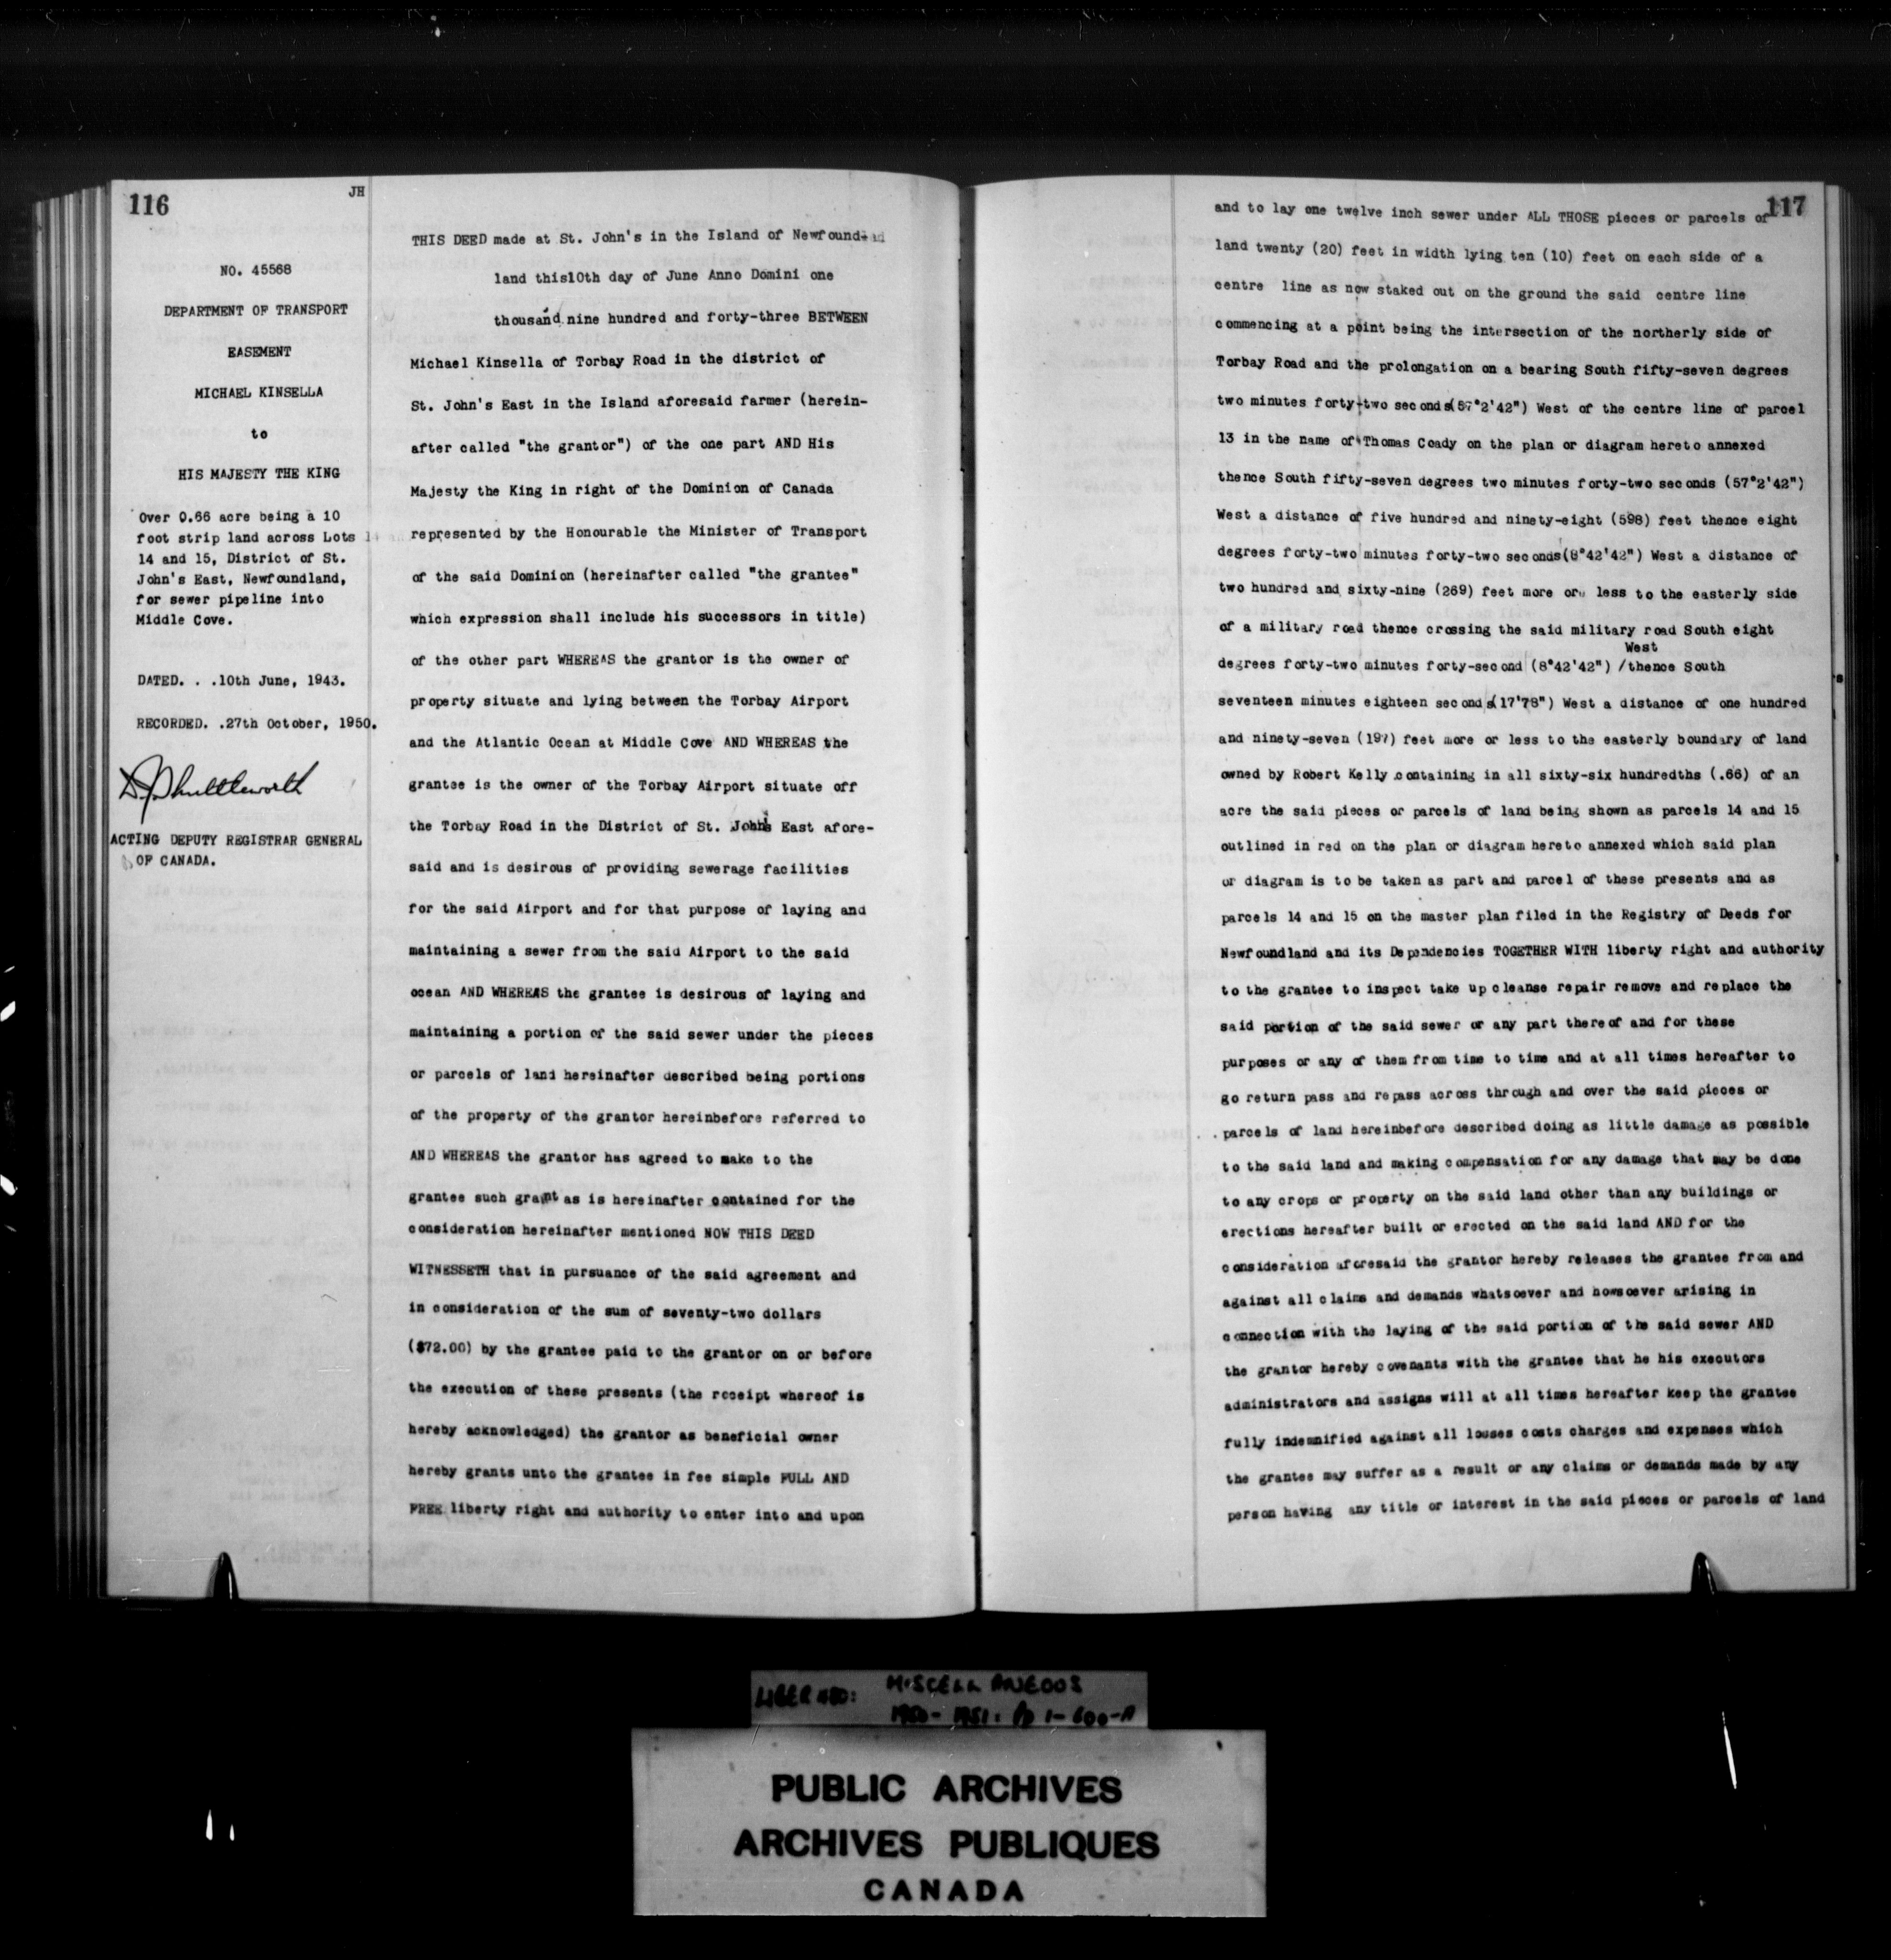 116
JH
NO. 45568
DEPARTMENT OF TRANSPORT
EASEMENT
MICHAEL KINSELLA
to
HIS MAJESTY THE KING
Over 0.66 acre being a 10
foot strip land across Lots
14 and 15, District of St.
John's East, Newfoundland,
for sewer pipeline into
Middle Cove.
DATED. . .10th June, 1943.
RECORDED. .27th October, 1950.
ACTING DEPUTY REGISTRAR GENERAL
OF CANADA.
THIS DEED made at St. John's in the Island of Newfound-
land this10th day of June Anno Domini one
thousand nine hundred and forty-three BETWEEN
Michael Kinsella of Torbay Road in the district of
St. John's East in the Island aforesaid farmer (herein-
after called "the grantor") of the one part AND His
Majesty the King in right of the Dominion of Canada
represented by the Honourable the Minister of Transport
of the said Dominion (hereinafter called "the grantee"
which expression shall include his successors in title)
of the other part WHEREAS the grantor is the owner of
property situate and lying between the Torbay Airport
and the Atlantic Ocean at Middle Cove AND WHEREAS the
grantee is the owner of the Torbay Airport situate off
the Torbay Road in the District of St. John's East afore-
said and is desirous of providing sewerage facilities
for the said Airport and for that purpose of laying and
maintaining a sewer from the said Airport to the said
ocean AND WHEREAS the grantee is desirous of laying and
maintaining a portion of the said sewer under the pieces
or parcels of land hereinafter described being portions
of the property of the grantor hereinbefore referred to
AND WHEREAS the grantor has agreed to make to the
grantee such grant as is hereinafter contained for the
consideration hereinafter mentioned NOW THIS DEED
WITNESSETH that in pursuance of the said agreement and
in consideration of the sum of seventy-two dollars
($72.00) by the grantee paid to the grantor on or before
the execution of these presents (the receipt whereof is
hereby acknowledged) the grantor as beneficial owner
hereby grants unto the grantee in fee simple FULL AND
FREE liberty right and authority to enter into and upon
117
and to lay one twelve inch sewer under ALL THOSE pieces or parcels of
land twenty (20) feet in width lying ten (10) feet on each side of a
centre line as now staked out on the ground the said centre line
commencing at a point being the intersection of the northerly side of
Torbay Road and the prolongation on a bearing South fifty-seven degrees
two minutes forty-two seconds(57°2'42") West of the centre line of parcel
13 in the name of Thomas Coady on the plan or diagram hereto annexed
thence South fifty-seven degrees two minutes forty-two seconds (57°2'42")
West a distance of five hundred and ninety-eight (598) feet thence eight
degrees forty-two minutes forty-two seconds(8°42'42") West a distance of
two hundred and sixty-nine (269) feet more or less to the easterly side
of a military road thence crossing the said military road South eight
West
degrees forty-two minutes forty-second (8°42'42") /thence South
seventeen minutes eighteen seconds(17'78") West a distance of one hundred
and ninety-seven (197) feet more or less to the easterly boundary of land
owned by Robert Kelly containing in all sixty-six hundredths (.66) of an
acre the said pieces or parcels of land being shown as parcels 14 and 15
outlined in red on the plan or diagram hereto annexed which said plan
or diagram is to be taken as part and parcel of these presents and as
parcels 14 and 15 on the master plan filed in the Registry of Deeds for
Newfoundland and its Dependencies TOGETHER WITH liberty right and authority
to the grantee to inspect take up cleanse repair remove and replace the
said portion of the said sewer or any part thereof and for these
purposes or any of them from time to time and at all times hereafter to
go return pass and repass across through and over the said pieces or
parcels of land hereinbefore described doing as little damage as possible
to the said land and making compensation for any damage that may be done
to any crops or property on the said land other than any buildings or
erections hereafter built or erected on the said land AND for the
consideration aforesaid the grantor hereby releases the grantee from and
against all claims and demands whatsoever and howsoever arising in
connection with the laying of the said portion of the said sewer AND
the grantor hereby covenants with the grantee that he his executors
administrators and assigns will at all times hereafter keep the grantee
fully indemnified against all losses costs charges and expenses which
the grantee may suffer as a result or any claims or demands made by any
person having any title or interest in the said pieces or parcels of land
MISCELLANEOUS
1950- 1951: pp 1-600-A
PUBLIC ARCHIVES
ARCHIVES PUBLIQUES
CANADA